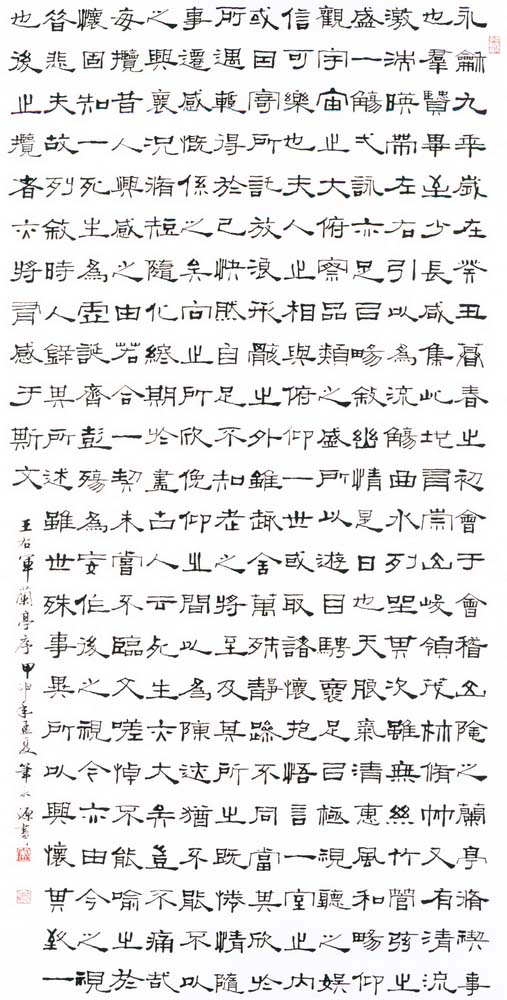 永龢九年歲在癸丑暮春之初會于會稽山陰之蘭亭脩禊事
也羣賢畢至少長咸集此地有崇山峻領茂林脩竹又有清流
激湍映帶左右引以為流觴曲水列坐其次雖無絲竹管弦之
盛一觴弌詠亦足㠯暢敘幽情是日也天朗氣清惠風和暢仰
觀宇宙之大俯察品類之盛所以遊目騁懷足㠯極視聽之娛
信可樂也夫人之相與俯仰一世或取諸懷抱悟言一室之內
或因寄所託放浪形骸之外雖趣舍萬殊靜躁不同當其欣於
所遇暫得於己快然自足不知老之將至及其所之既惓情隨
事遷感慨係之矣向之所欣俛仰之間以為陳迹猶不能不以
之興懷況脩短隨化終期於盡古人云死生亦大矣豈不痛哉
每攬昔人興感之由若合一契未嘗不臨文嗟悼不能喻之於
懷固知一死生為虛誕齊彭殤為妄作後之視今亦由今之視
昔悲夫故列敘時人錄其所述雖世殊事異所以興懷其致一
也後之攬者亦將有感于斯文
王右軍蘭亭序甲申年孟夏源書